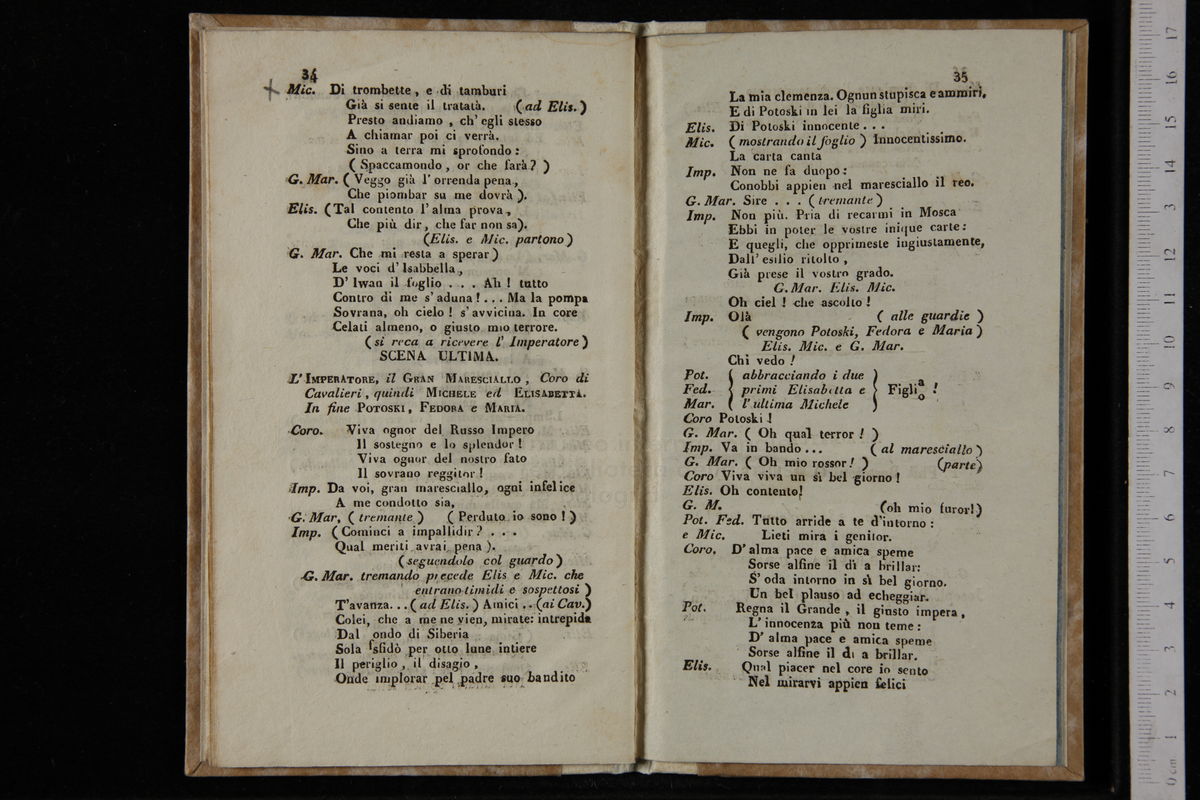 34
Mic. Di trombette, e di tamburi
Già si sente il tratatà. (ad Elis.)
Presto andiamo, ch' egli stesso
A chiamar poi ci verrà.
Sino a terra mi sprofondo:
(Spaccamondo, or che farà?)
G. Mar. (Veggo già l' orrenda pena,
Che piombar su me dovrà).
Elis. (Tal contento l' alma prova,
Che più dir, che far non sa).
(Elis. e Mic. partono)
G. Mar. Che mi resta a sperar)
Le voci d' Isabbella,
D' Iwan il foglio . . . Ah! tutto
Contro di me s' aduna!... Ma la pompa
Sovrana, oh cielo! s' avvicina. In core
Celati almeno, o giusto mio terrore.
(si reca a ricevere l' Imperatore)
SCENA ULTIMA.
L' IMPERATORE, il GRAN MARESCIALLO, Coro di
Cavalieri, quindi MICHELE ed ELISABETTA.
In fine POTOSKI, FEDORA e MARIA.
Coro. Viva ognor del Russo Impero
Il sostegno e lo splendor!
Viva ognor del nostro fato
Il sovrano reggitor!
Imp. Da voi, gran maresciallo, ogni infelice
A me condotto sia,
G. Mar, (tremante) (Perduto io sono!)
Imp. (Cominci a impallidir? . . .
Qual meriti avrai pena).
(seguendolo col guardo)
G. Mar. tremando precede Elis e Mic. che
entrano timidi e sospettosi)
T'avanza...(ad Elis.) Amici..(ai Cav.)
Colei, che a me ne vien, mirate: intrepida
Dal ondo di Siberia
Sola fsfidò per otto lune intiere
Il periglio, il disagio,
Onde implorar pel padre suo bandito
35
La mia clemenza. Ognun stupisca e ammiri,
E di Potoski in lei la figlia miri.
Elis. Di Potoski innocente...
Mic. (mostrando il foglio) Innocentissimo.
La carta canta
Imp. Non ne fa duopo:
Conobbi appien nel maresciallo il reo.
G. Mar. Sire . . . (tremante)
Imp. Non più. Pria di recarmi in Mosca
Ebbi in poter le vostre inique carte:
E quegli, che opprimeste ingiustamente,
Dall' esilio ritolto,
Già prese il vostro grado.
G. Mar. Elis. Mic.
Oh ciel! che ascolto!
Imp. Olà (alle guardie)
(vengono Potoski, Fedora e Maria)
Elis. Mic. e G. Mar.
Chi vedo!
Pot. ( abbracciando i due )
Fed. { primi Elisabetta e } Figli a o !
Mar. ( l' ultima Michele )
Coro Potoski!
G. Mar. (Oh qual terror!)
Imp. Va in bando... (al maresciallo)
G. Mar. (Oh mio rossor!) (parte)
Coro Viva viva un sì bel giorno!
Elis. Oh contento!
G. M. (oh mio furor!)
Pot. Fed. Tutto arride a te d'intorno:
e Mic. Lieti mira i genitor.
Coro, D' alma pace e amica speme
Sorse alfine il dì a brillar:
S' oda intorno in sì bel giorno.
Un bel plauso ad echeggiar.
Pot. Regna il Grande, il giusto impera,
L' innocenza più non teme:
D' alma pace e amica speme
Sorse alfine il dì a brillar.
Elis. Qual piacer nel core io sento
Nel mirarvi appien felici
0 cm 1 2 3 4 5 6 7 8 9 10 11 12 13 14 15 16 17